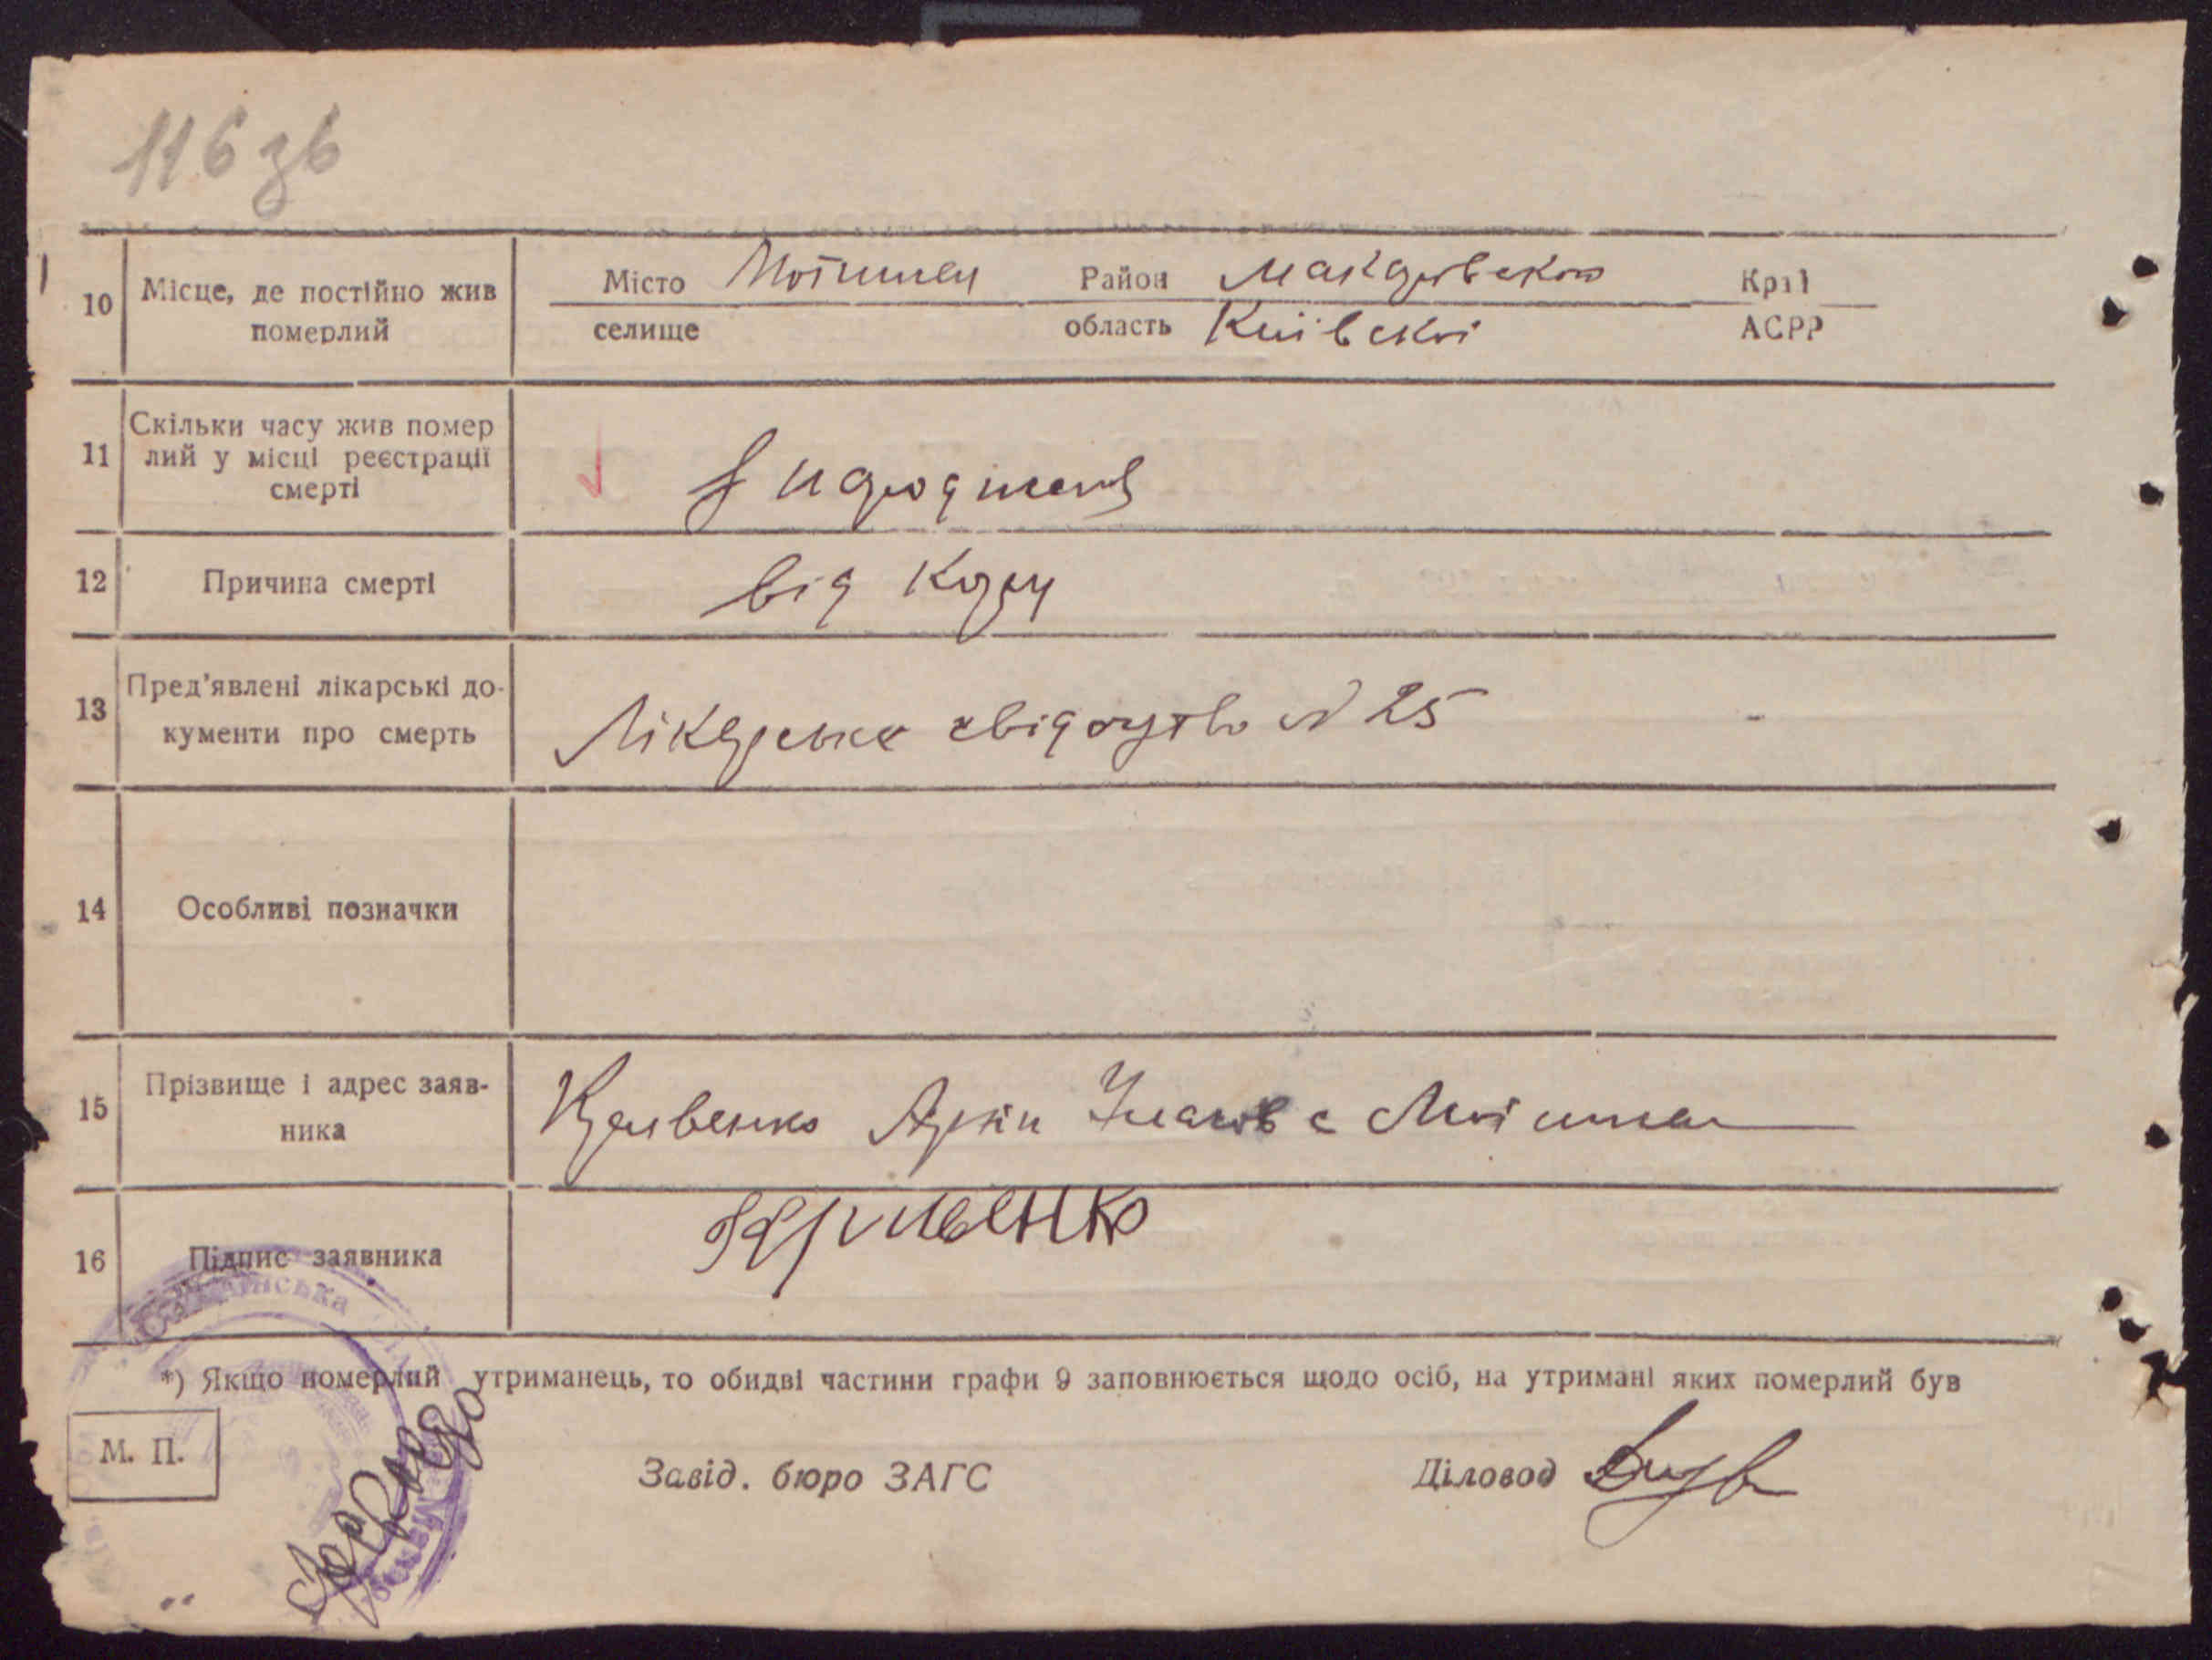 116 зв
10 Місце, де постійно жив померлий
Місто Мотижен Район Макарівського Краї
селище область Київської АСРР
11 Скільки часу жив помер
лий у місці реєстрації
смерті
З народження
12 Причина смерті від кору
13 Пред'явлені лікарські до-
кументи про смерть
Лікарське свідоцтво № 25
14 Особливі позначки
15 Прізвище і адрес заяв-
ника
Кравенко с
16 Підпис заявника
*) Якщо померлий утриманець, то обидві частини графи 9 заповнюється щодо осіб, на утримані яких померлий був
М. П.
Завід. бюро ЗАГС Діловод